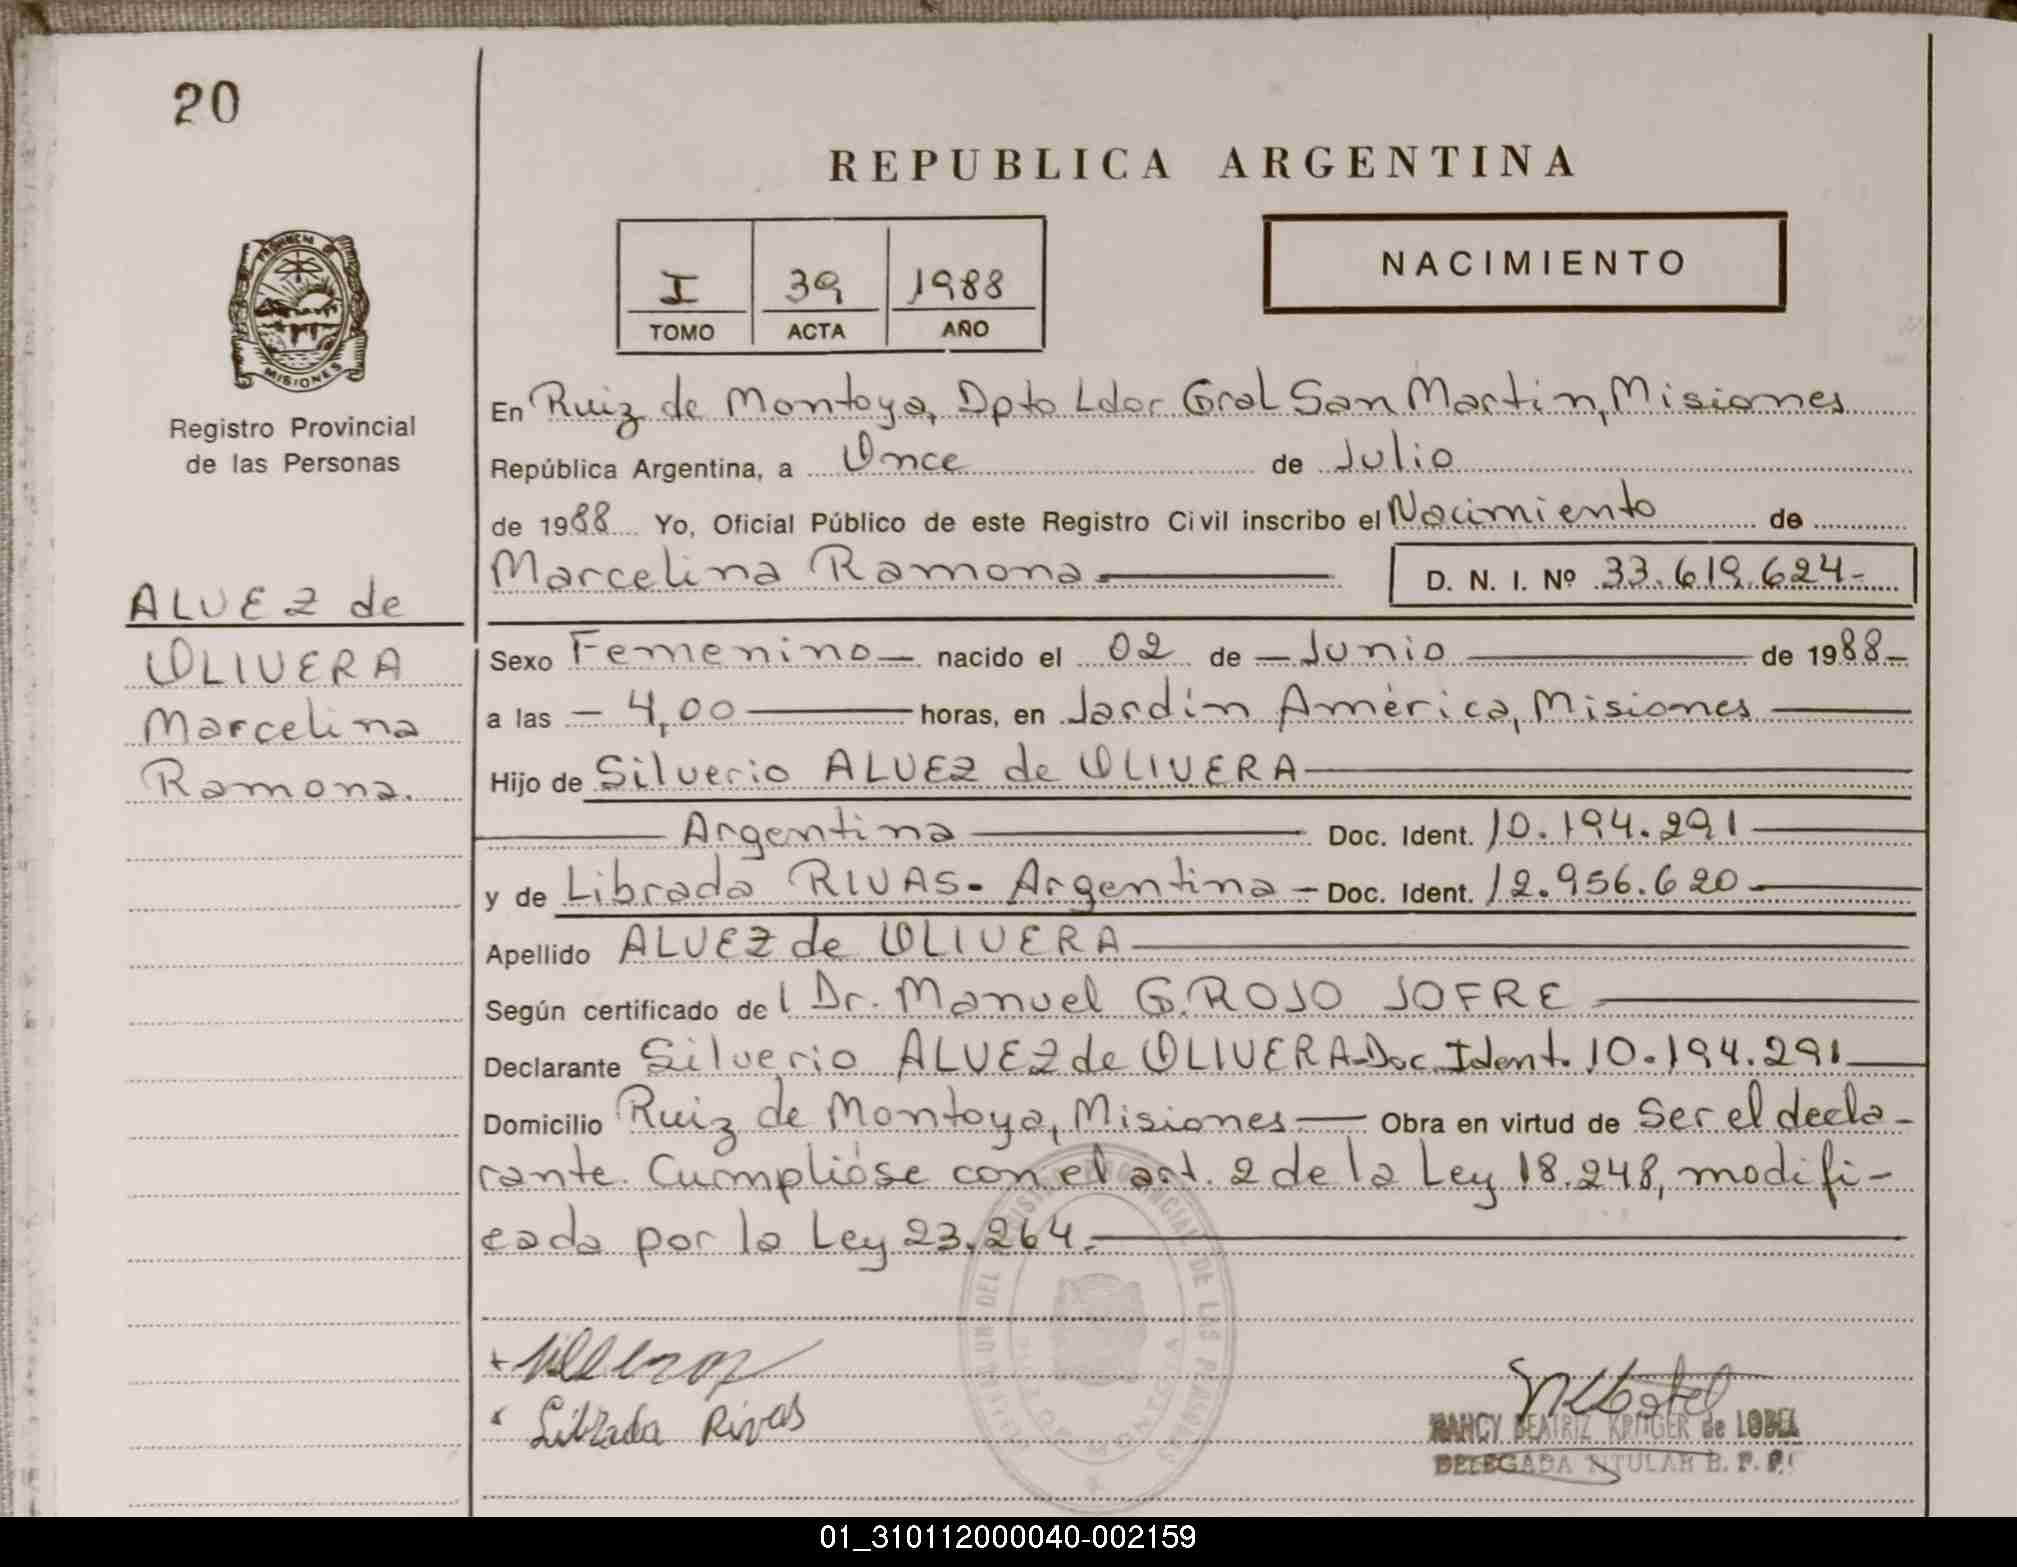 20
REPUBLICA ARGENTINA
I 39 1988
TOMO ACTA AÑO
NACIMIENTO
PROVINCIA DE
MISIONES
Registro Provincial
de las Personas
ALVEZ de
OLIVERA
Marcelina
Ramona.
En Ruiz de Montoya, Dpto Ldor Gral San Martin, Misiones
República Argentina, a Once de Julio
de 1988 Yo, Oficial Público de este Registro Civil inscribo el Nacimiento de
Marcelina Ramona D. N. I. Nº 33.619.624-
Sexo Femenino nacido el 02 de Junio de 1988
a las 4,00 horas, en Jardín América, Misiones
Hijo de Silverio ALVEZ de OLIVERA
Argentina Doc. Ident. 10.194.291
y de Librada RIVAS - Argentina - Doc. Ident. 12.956.620
Apellido ALVEZ de OLIVERA
Según certificado del Dr. Manuel G. ROJO JOFRE
Declarante Silverio ALVEZ de OLIVERA-Doc. Ident. 10.194.291
Domicilio Ruiz de Montoya, Misiones Obra en virtud de Ser el decla-
rante. Cumplióse con el art. 2 de la Ley 18.248, modifi-
cada por la Ley 23.264.-
Librada Rivas
NANCY BEATRIZ KRUGER de LOBEL
DELEGADA TITULAR
01_310112000040-002159